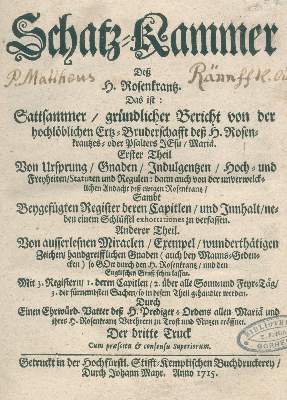 Schatz-Kammer
P. Matthæus
Deß
H. Rosenkrantz.
Das ist:
Sattsammer / gründlicher Bericht von der
hochlöblichen Ertz-Bruderschafft deß H. Rosen-
krantzes- oder Psalters JEsu / Mariä.
Erster Theil
Von Ursprung / Gnaden / Indulgentzen / Hoch- und
Freyheiten / Statuten und Regulen: dann auch von der unverwelck-
lichen Andacht deß ewigen Rosenkrantz /
Sambt
Beygefügten Register deren Capitlen / und Innhalt / ne-
ben einem Schlüssel exhortationes zu verfassen.
Anderer Theil.
Von außerlesnen Miraclen / Exempel / wunderthätigen
Zeichen / handgreifflichen Gnaden (auch bey Manns-Geden-
cken) so GOtt durch den H. Rosenkrantz / und den
Englischen Gruß sehen lassen.
Mit 3. Registern / 1. deren Capitlen / 2. über alle Sonn- und Feyr-Täg /
3. der fürnemsten Sachen / so in disem Theil gehandlet werden.
Durch
Einen Ehrwürd. Vatter deß H. Prediger-Ordens allen Mariä und
ihres H. Rosenkrantz Verehrern zu Trost und Nutzen eröffnet.
Der dritte Truck
Cum præscitu & consensu Superiorum.
Getruckt in der Hochfürstl. Stifft-Kemptischen Buchdruckerey /
Durch Johann Mayr. Anno 1715.